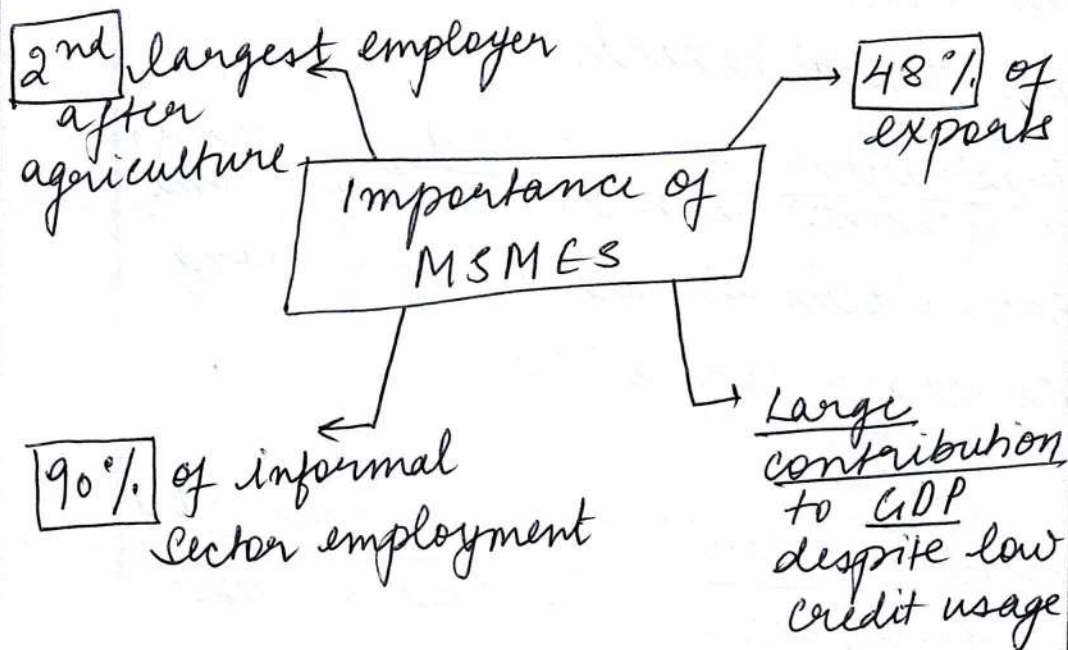 2nd largest employer
after
agriculture
48% of
exports
Importance of
MSMES
90% of informal
sector employment
Large
contribution
to GDP
despite low
credit usage